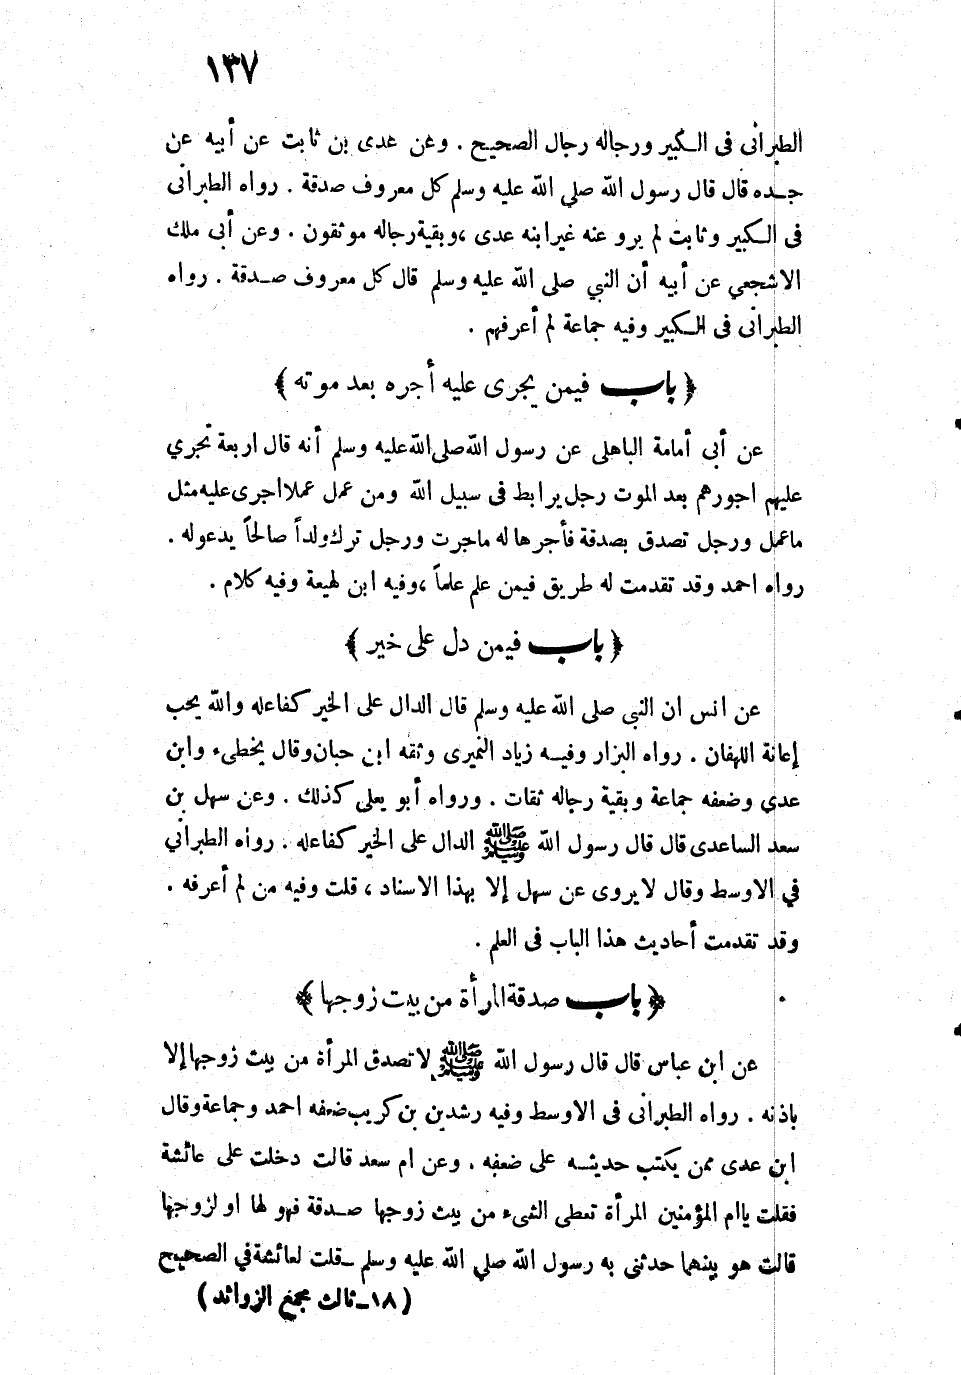 ١٣٧
الطبرانى فى الكبير ورجاله رجال الصحيح . وعن عدى بن ثابت عن أبيه عن
جده قال قال رسول الله صلي الله عليه وسلم كل معروف صدقة . رواه الطبرانى
فى الكبير وثابت لم يرو عنه غير ابنه عدى ،وبقية رجاله موثقون . وعن أبى ملك
الاشجعي عن أبيه أن النبي صلى الله عليه وسلم قال كل معروف صدقة . رواه
الطبرانى فى الكبير وفيه جماعة لم أعرفهم .
﴿ باب فيمن يجرى عليه أجره بعد موته ﴾
عن أبى أمامة الباهلى عن رسول الله صلى الله عليه وسلم أنه قال اربعة تجري
عليهم اجورهم بعد الموت رجل يرابط فى سبيل الله ومن عمل عملا اجرى عليه مثل
ماعمل ورجل تصدق بصدقة فأجرها له ماجرت ورجل ترك ولداً صالحاً يدعوله .
رواه احمد وقد تقدمت له طريق فيمن علم علماً ،وفيه ابن لهيعة وفيه كلام .
﴿ باب فيمن دل على خير ﴾
عن انس ان النبى صلى الله عليه وسلم قال الدال على الخير كفاعله والله يحب
إعانة اللهفان . رواه البزار وفيه زياد النميرى وثقه ابن حبان وقال يخطىء وابن
عدي وضعفه جماعة وبقية رجاله ثقات . ورواه أبو يعلى كذلك . وعن سهل بن
سعد الساعدى قال قال رسول الله ﷺ الدال على الخير كفاعله . رواه الطبرانى
في الاوسط وقال لايروى عن سهل إلا بهذا الاسناد ، قلت وفيه من لم أعرفه .
وقد تقدمت أحاديث هذا الباب فى العلم .
﴿ باب صدقة المرأة من بيت زوجها ﴾
عن ابن عباس قال قال رسول الله ﷺ لاتصدق المرأة من بيت زوجها إلا
باذنه . رواه الطبرانى فى الاوسط وفيه رشدين بن كريب ضعفه احمد وجماعة وقال
ابن عدى ممن يكتب حديثه على ضعفه . وعن ام سعد قالت دخلت على عائشة
فقلت ياام المؤمنين المرأة تعطى الشىء من بيت زوجها صدقة فهو لها او لزوجها
قالت هو بينهما حدثنى به رسول الله صلي الله عليه وسلم ـ قلت لعائشة في الصحيح
(١٨ ـ ثالث مجمع الزوائد)